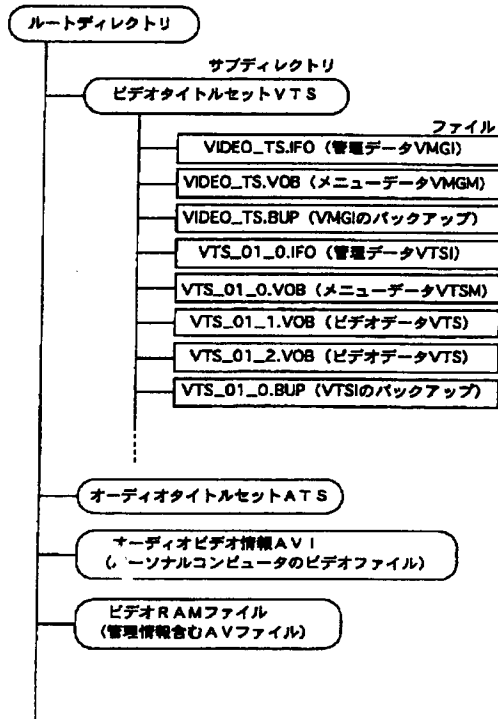 ルートディレクトリ
サブディレクトリ
ビデオタイトルセットVTS
ファイル
VIDEO_TS.IFO(管理データVMGI)
VIDEO_TS.VOB(メニューデータVMGM)
VIDEO_TS.BUP(VMGIのバックアップ)
VTS_01_0.IFO(管理データVTSI)
VTS_01_0.VOB(メニューデータVTSM)
VTS_01_1.VOB(ビデオデータVTS)
VTS_01_2.VOB(ビデオデータVTS)
VTS_01_0.BUP(VTSIのバックアップ)
オーディオタイトルセットATS
オーディオビデオ情報AVI
(パーソナルコンピュータのビデオファイル)
ビデオRAMファイル
(管理情報含むAVファイル)